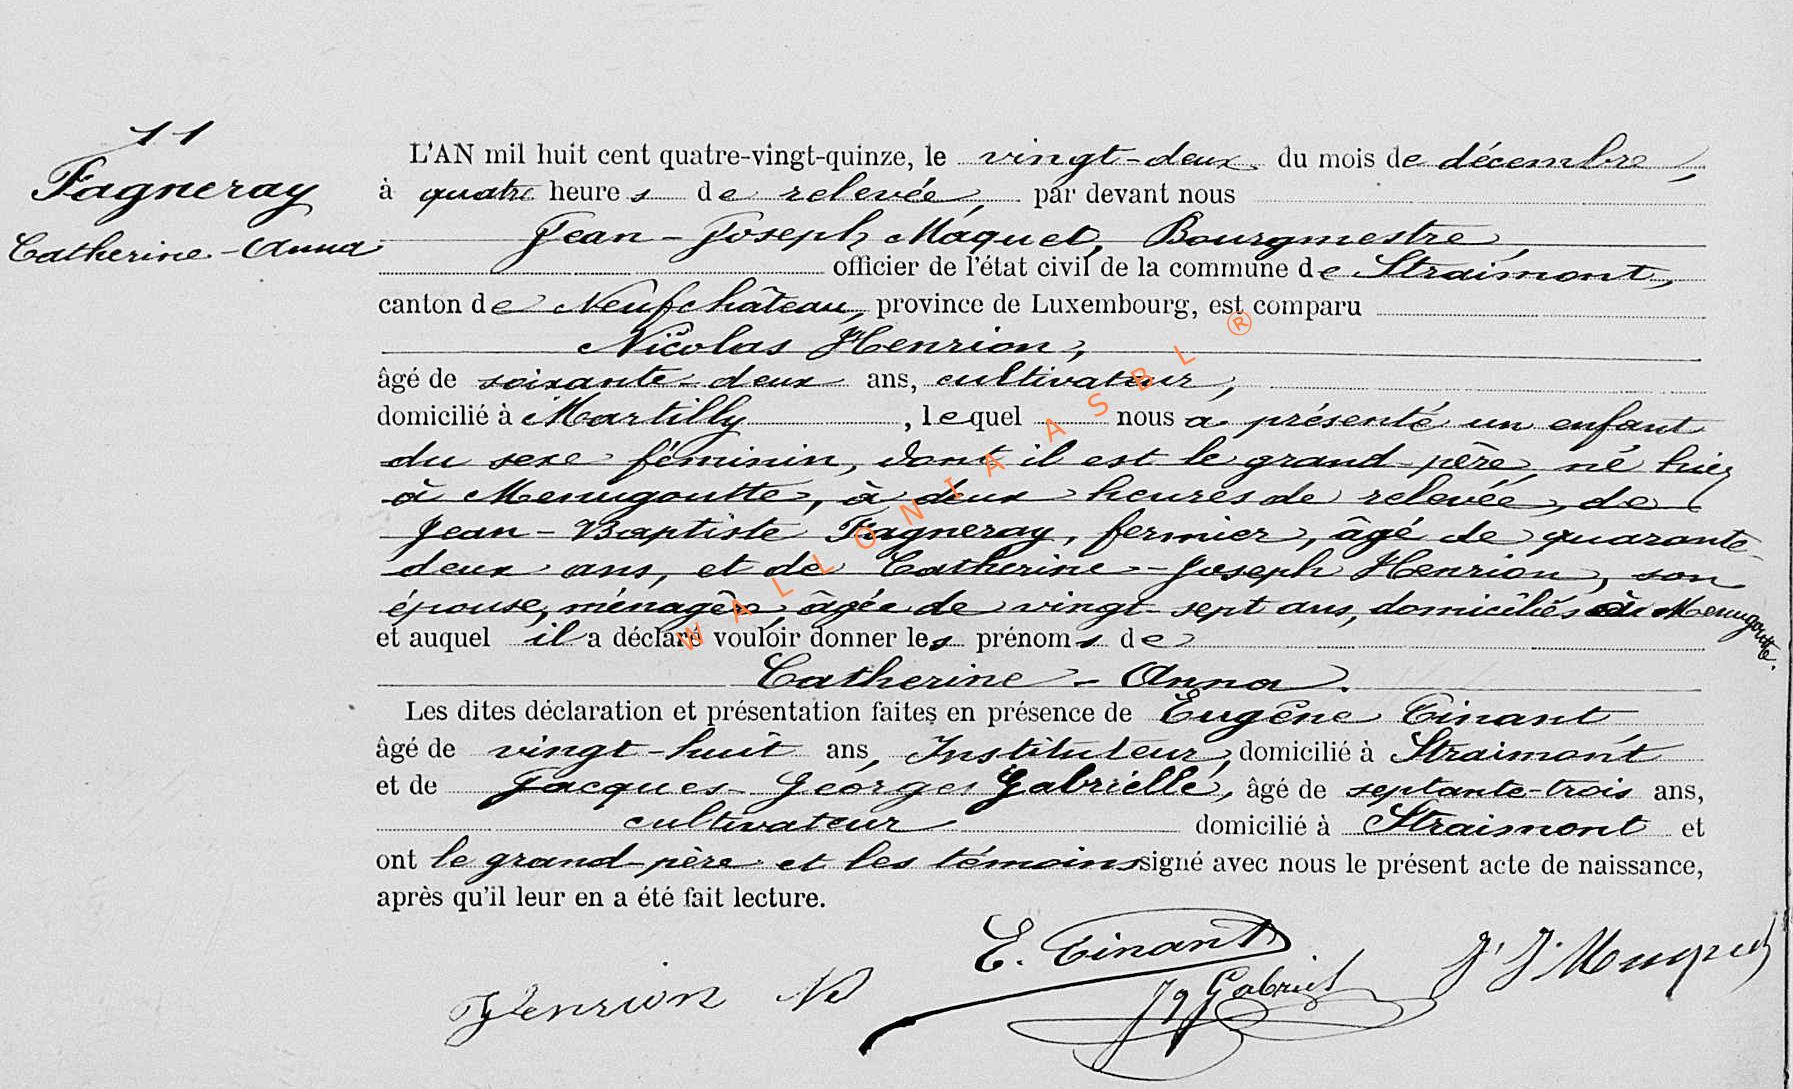 11
Fagneray
Catherine-Anna
L'AN mil huit cent quatre-vingt-quinze, le vingt-deux du mois de décembre,
à quatre heures de relevée, par devant nous
Jean-Joseph Maquet, Bourgmestre,
officier de l'état civil de la commune de Straimont,
canton de Neufchâteau, province de Luxembourg, est comparu
Nicolas Henrion,
âgé de soixante-deux ans, cultivateur,
domicilié à Martilly, lequel nous a présenté un enfant
du sexe féminin, dont il est le grand-père, né hier
à Menugoutte, à deux heures de relevée, de
Jean-Baptiste Fagneray, fermier, âgé de quarante-
deux ans, et de Catherine-Joseph Henrion, son
épouse, ménagère, âgée de vingt-sept ans, domiciliés à Menugoutte.
et auquel il a déclaré vouloir donner les prénoms de
Catherine-Anna.
Les dites déclaration et présentation faites en présence de Eugène Tinant
âgé de vingt-huit ans, Instituteur, domicilié à Straimont
et de Jacques-Georges Gabrielle, âgé de septante-trois ans,
cultivateur domicilié à Straimont et
ont le grand-père et les témoins signé avec nous le présent acte de naissance,
après qu'il leur en a été fait lecture.
E. Tinant
Henrion N
J G Gabriel
J. J. Maquet
WALLONIA ASBL ®